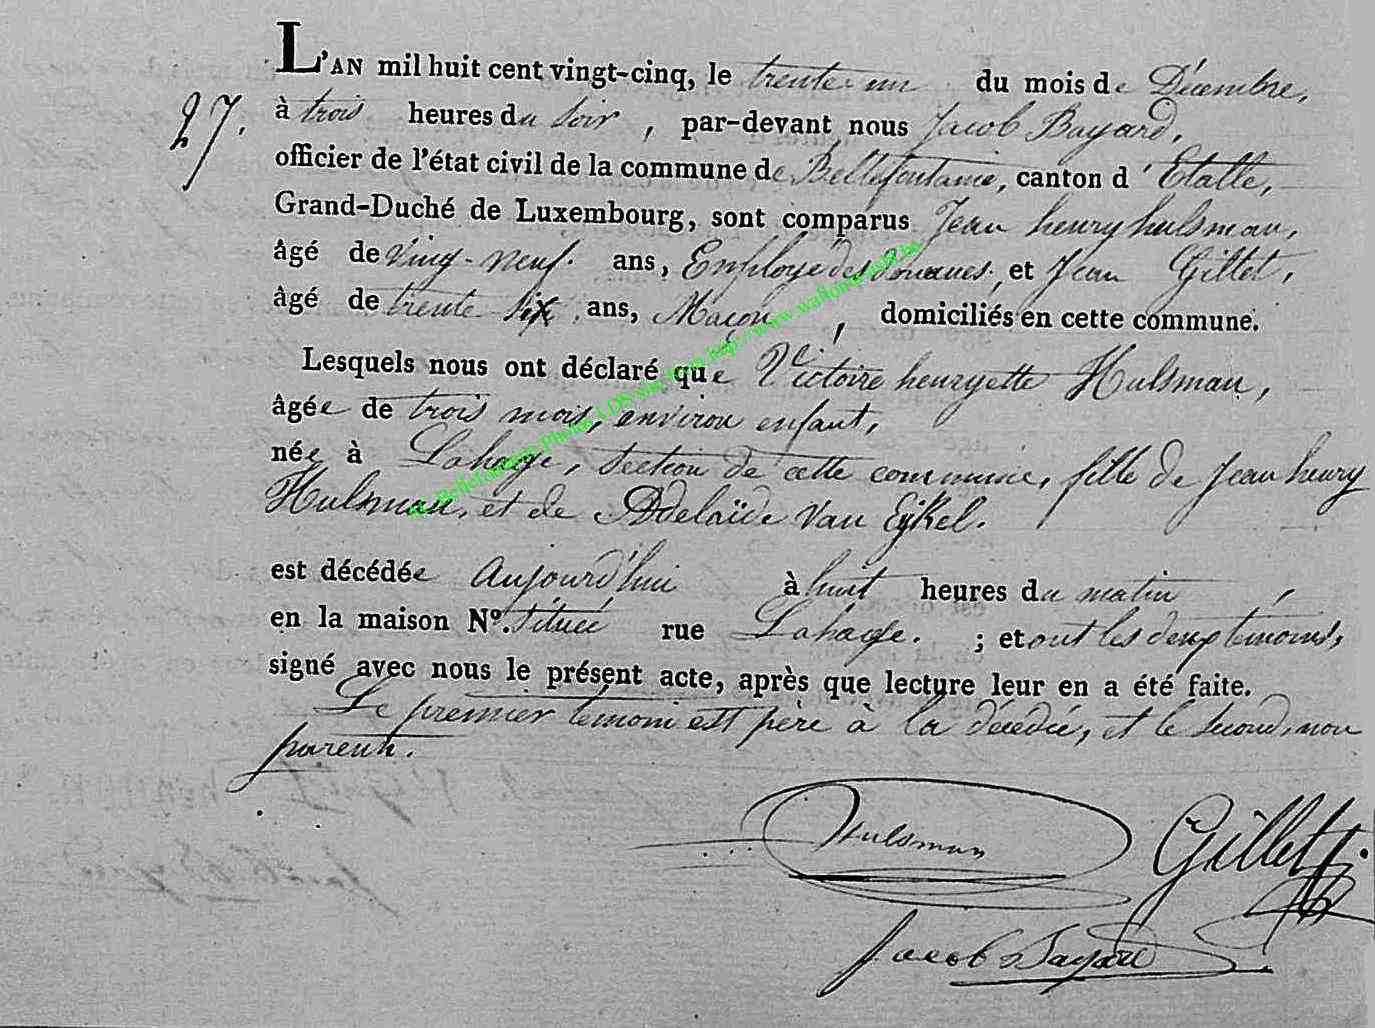 L'AN mil huit cent vingt-cinq, le trente un du mois de Décembre,
27.
à trois heures du soir, par-devant nous Jacob Bayard,
officier de l'état civil de la commune de Bellefontaine, canton d'Etalle,
Grand-Duché de Luxembourg, sont comparus Jean henry hulsman,
âgé de Ving-neuf. ans, Employé des Douanes, et Jean Gillet,
âgé de trente six ans, Maçon, domiciliés en cette commune.
Lesquels nous ont déclaré que Victoire henryette Hulsman,
âgée de trois mois, environ enfant,
née à Lahage, section de cette commune, fille de Jean henry
Hulsman, et de Adelaïde Van Eijkel.
est décédée aujourd'hui à huit heures du matin,
en la maison Nº. située rue Lahage. ; et ont les deux témoins,
signé avec nous le présent acte, après que lecture leur en a été faite.
Le premier témoin est père à la décédée, et le second, non
parent.
Hulsman Gillet
Jacob Bayard